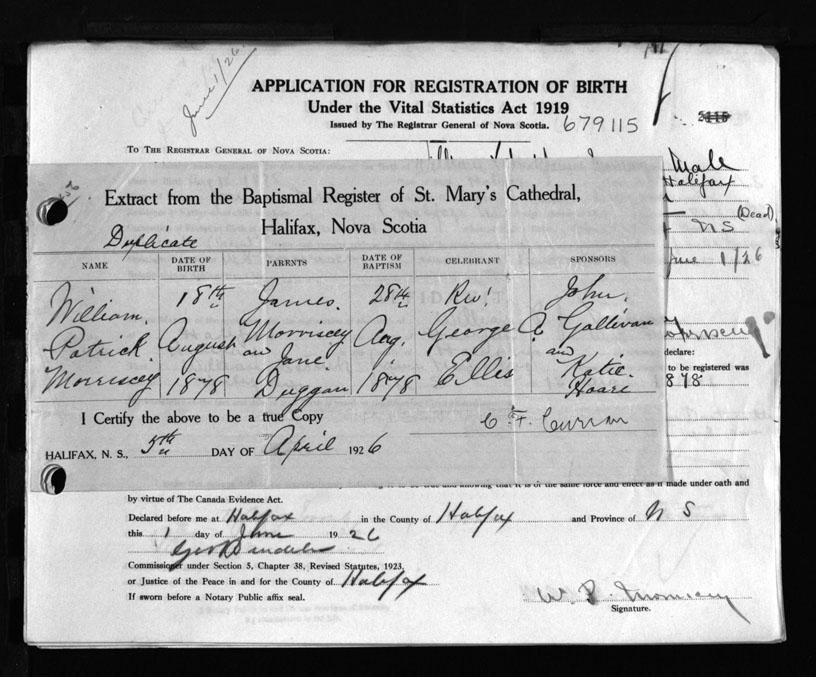 June 1/26
APPLICATION FOR REGISTRATION OF BIRTH
Under the Vital Statistics Act 1919
Issued by The Registrar General of Nova Scotia. 679115
2115
TO THE REGISTRAR GENERAL OF NOVA SCOTIA:
Male
Halifax
(Dead)
N S
June 1/26
declare:
to be registered was
1878
Extract from the Baptismal Register of St. Mary's Cathedral,
Halifax, Nova Scotia
Duplicate
NAME DATE OF BIRTH PARENTS DATE OF BAPTISM CELEBRANT SPONSORS
William 18th James 28th Rev! John
Patrick August Morriscey and Aug. George A. Gallivan and
Morriscey 1878 Jane Duggan 1878 Ellis Katie Hoare
I Certify the above to be a true Copy
C. F. Curran
HALIFAX, N. S., 5th DAY OF April 1926
it is of the same force and effect as if made under oath and
by virtue of The Canada Evidence Act.
Declared before me at Halifax in the County of Halifax and Province of N S
this 1 day of June 1926
Commissioner under Section 5, Chapter 38, Revised Statutes, 1923,
or Justice of the Peace in and for the County of Halifax
If sworn before a Notary Public affix seal.
W. P. Morriscey
Signature.